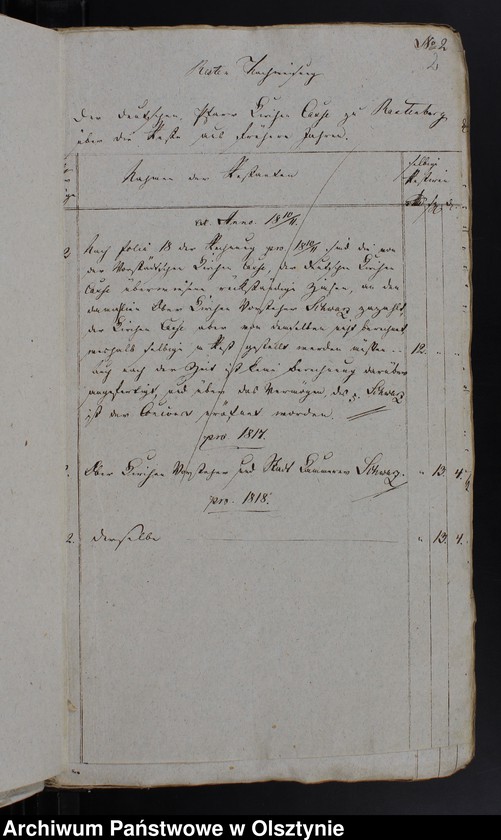 No 2
2
Resten Nachweisung
Der Deutschen Pfarr Kirchen Casse zu Rastenburg
über die Reste aus frühern Jahren.
Nahmen der Restanten
selbige
Restiren
Anno. 1810/11.
Nach folio 13 der Rechnung pro 1810/11 sind die von
der Vorstädtschen Kirchen Casse, der Deutschen Kirchen
Casse überwiesene rückständige Zinsen, an den
damaligen Ober Kirchen Vorsteher Schwarz gezahlt,
der Kirchen Casse aber von demselben nicht berechnet
weshalb selbige in Rest gestellt werden müssen.. 12. " "
Auch nach der Zeit ist keine Berechnung darüber
angefertigt und über das Vermögen des p. Schwarz
ist der Concurs eröfnet worden.
pro 1817.
Ober Kirchen Vorsteher und Stadt Cämmerer Schwarz. " 13. 4.
pro. 1818.
2. derselbe " 13. 4.
Archiwum Państwowe w Olsztynie